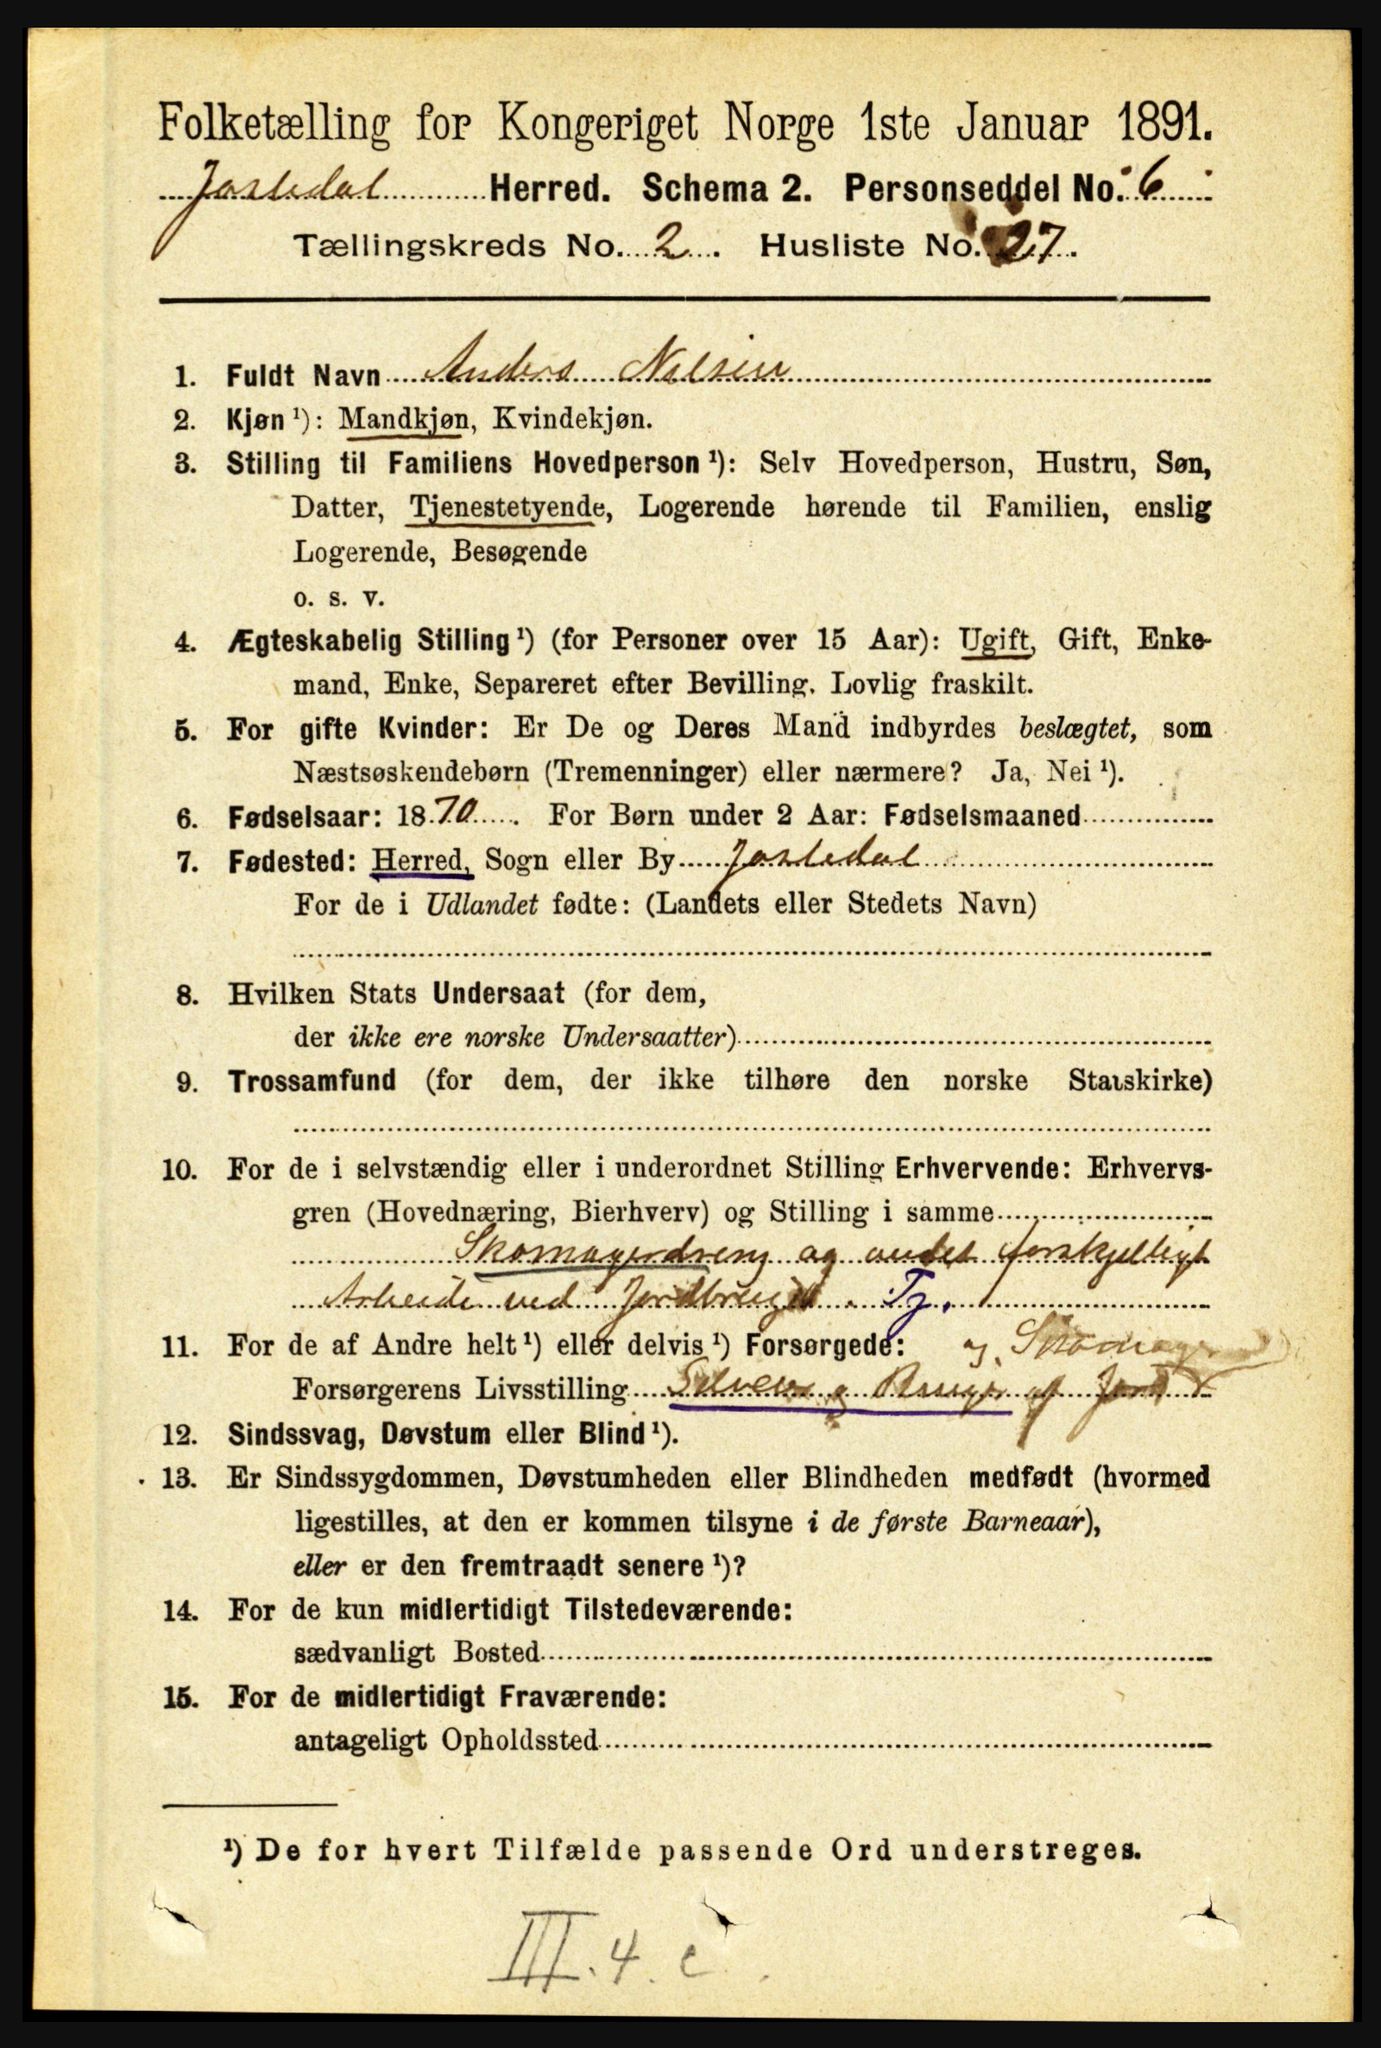 Folketælling for Kongeriget Norge 1ste Januar 1891.
Jostedal Herred. Schema 2. Personseddel No. 6
Tællingskreds No. 2. Husliste No. 27.
1. Fuldt Navn Anders Nilsen
2. Kjøn ¹): Mandkjøn, Kvindekjøn.
3. Stilling til Familiens Hovedperson ¹): Selv Hovedperson, Hustru, Søn,
Datter, Tjenestetyende, Logerende hørende til Familien, enslig
Logerende, Besøgende
o. s. v.
4. Ægteskabelig Stilling ¹) (for Personer over 15 Aar): Ugift, Gift, Enke-
mand, Enke, Separeret efter Bevilling. Lovlig fraskilt.
5. For gifte Kvinder: Er De og Deres Mand indbyrdes beslægtet, som
Næstsøskendebørn (Tremenninger) eller nærmere? Ja, Nei ¹).
6. Fødselsaar: 1870. For Børn under 2 Aar: Fødselsmaaned
7. Fødested: Herred, Sogn eller By Jostedal
For de i Udlandet fødte: (Landets eller Stedets Navn)
8. Hvilken Stats Undersaat (for dem,
der ikke ere norske Undersaatter)
9. Trossamfund (for dem, der ikke tilhøre den norske Statskirke)
10. For de i selvstændig eller i underordnet Stilling Erhvervende: Erhvervs-
gren (Hovednæring, Bierhverv) og Stilling i samme
Skomagerdreng og andet forskjelligt
Arbeide ved Jordbruget. Tj.
11. For de af Andre helt ¹) eller delvis ¹) Forsørgede: og Skomager
Forsørgerens Livsstilling Selveier og Bruger af Jord
12. Sindssvag, Døvstum eller Blind ¹).
13. Er Sindssygdommen, Døvstumheden eller Blindheden medfødt (hvormed
ligestilles, at den er kommen tilsyne i de første Barneaar),
eller er den fremtraadt senere ¹)?
14. For de kun midlertidigt Tilstedeværende:
sædvanligt Bosted
15. For de midlertidigt Fraværende:
antageligt Opholdssted
¹) De for hvert Tilfælde passende Ord understreges.
III. 4. c.